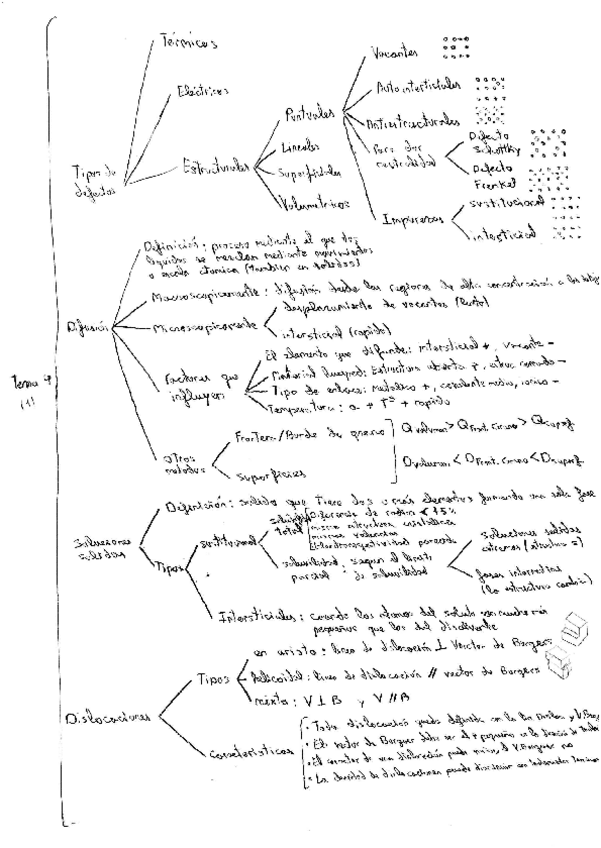 Tema 4
(1)
Tipos de
defectos
Térmicos
Eléctricos
Estructurales
Puntuales
Lineales
Superficiales
Volumétricos
Vacantes
Autointersticiales
Antiestructurales
Para dar
neutralidad
Defecto
Schottky
Defecto
Frenkel
Impurezas
sustitucional
intersticial
Difusión
Definición: proceso mediante el que dos
líquidos se mezclan mediante movimientos
a escala atómica (también en sólidos)
Macroscópicamente: difusión desde las regiones de alta concentración a las
Microscópicamente
desplazamiento de vacantes (lento)
intersticial (rápido)
Factores que
influyen
El elemento que difunde: intersticial +, vacante -
Material huésped: Estructura abierta +, estruc cerrada -
Tipo de enlace: metálico +, covalente medio, iónico -
Temperatura: a + Tª + rápido
otros
métodos
Frontera/Borde de grano
superficies
Q volumen > Q front. grano > Q superf.
D volumen < D front. grano < D superf.
Soluciones
sólidas
Definición: sólido que tiene dos o más elementos formando una sola fase
Tipos
sustitucional
solubilidad
total
Diferencia de radios < 15%
misma estructura cristalina
misma valencia
Electronegatividad parecida
solubilidad
parcial
: según el límite
de solubilidad
soluciones sólidas
extremas (estructura =)
fases intermedias
(la estructura cambia)
Intersticiales: cuando los átomos del soluto son mucho más
pequeños que los del disolvente
Dislocaciones
Tipos
en arista: línea de dislocación ⊥ Vector de Burgers
helicoidal: línea de dislocación // vector de Burgers
mixta: V ⊥ B y V // B
características
• Toda dislocación queda definida con la
• El vector de Burgers debe ser el + pequeño
• El carácter de una dislocación puede variar, el V. Burgers no
• La densidad de dislocaciones puede disminuir con